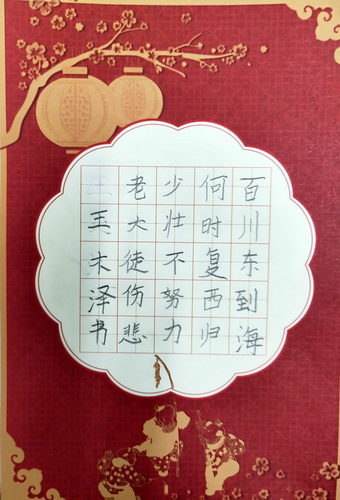 百川东到海
何时复西归
少壮不努力
老大徒伤悲
玉木泽书